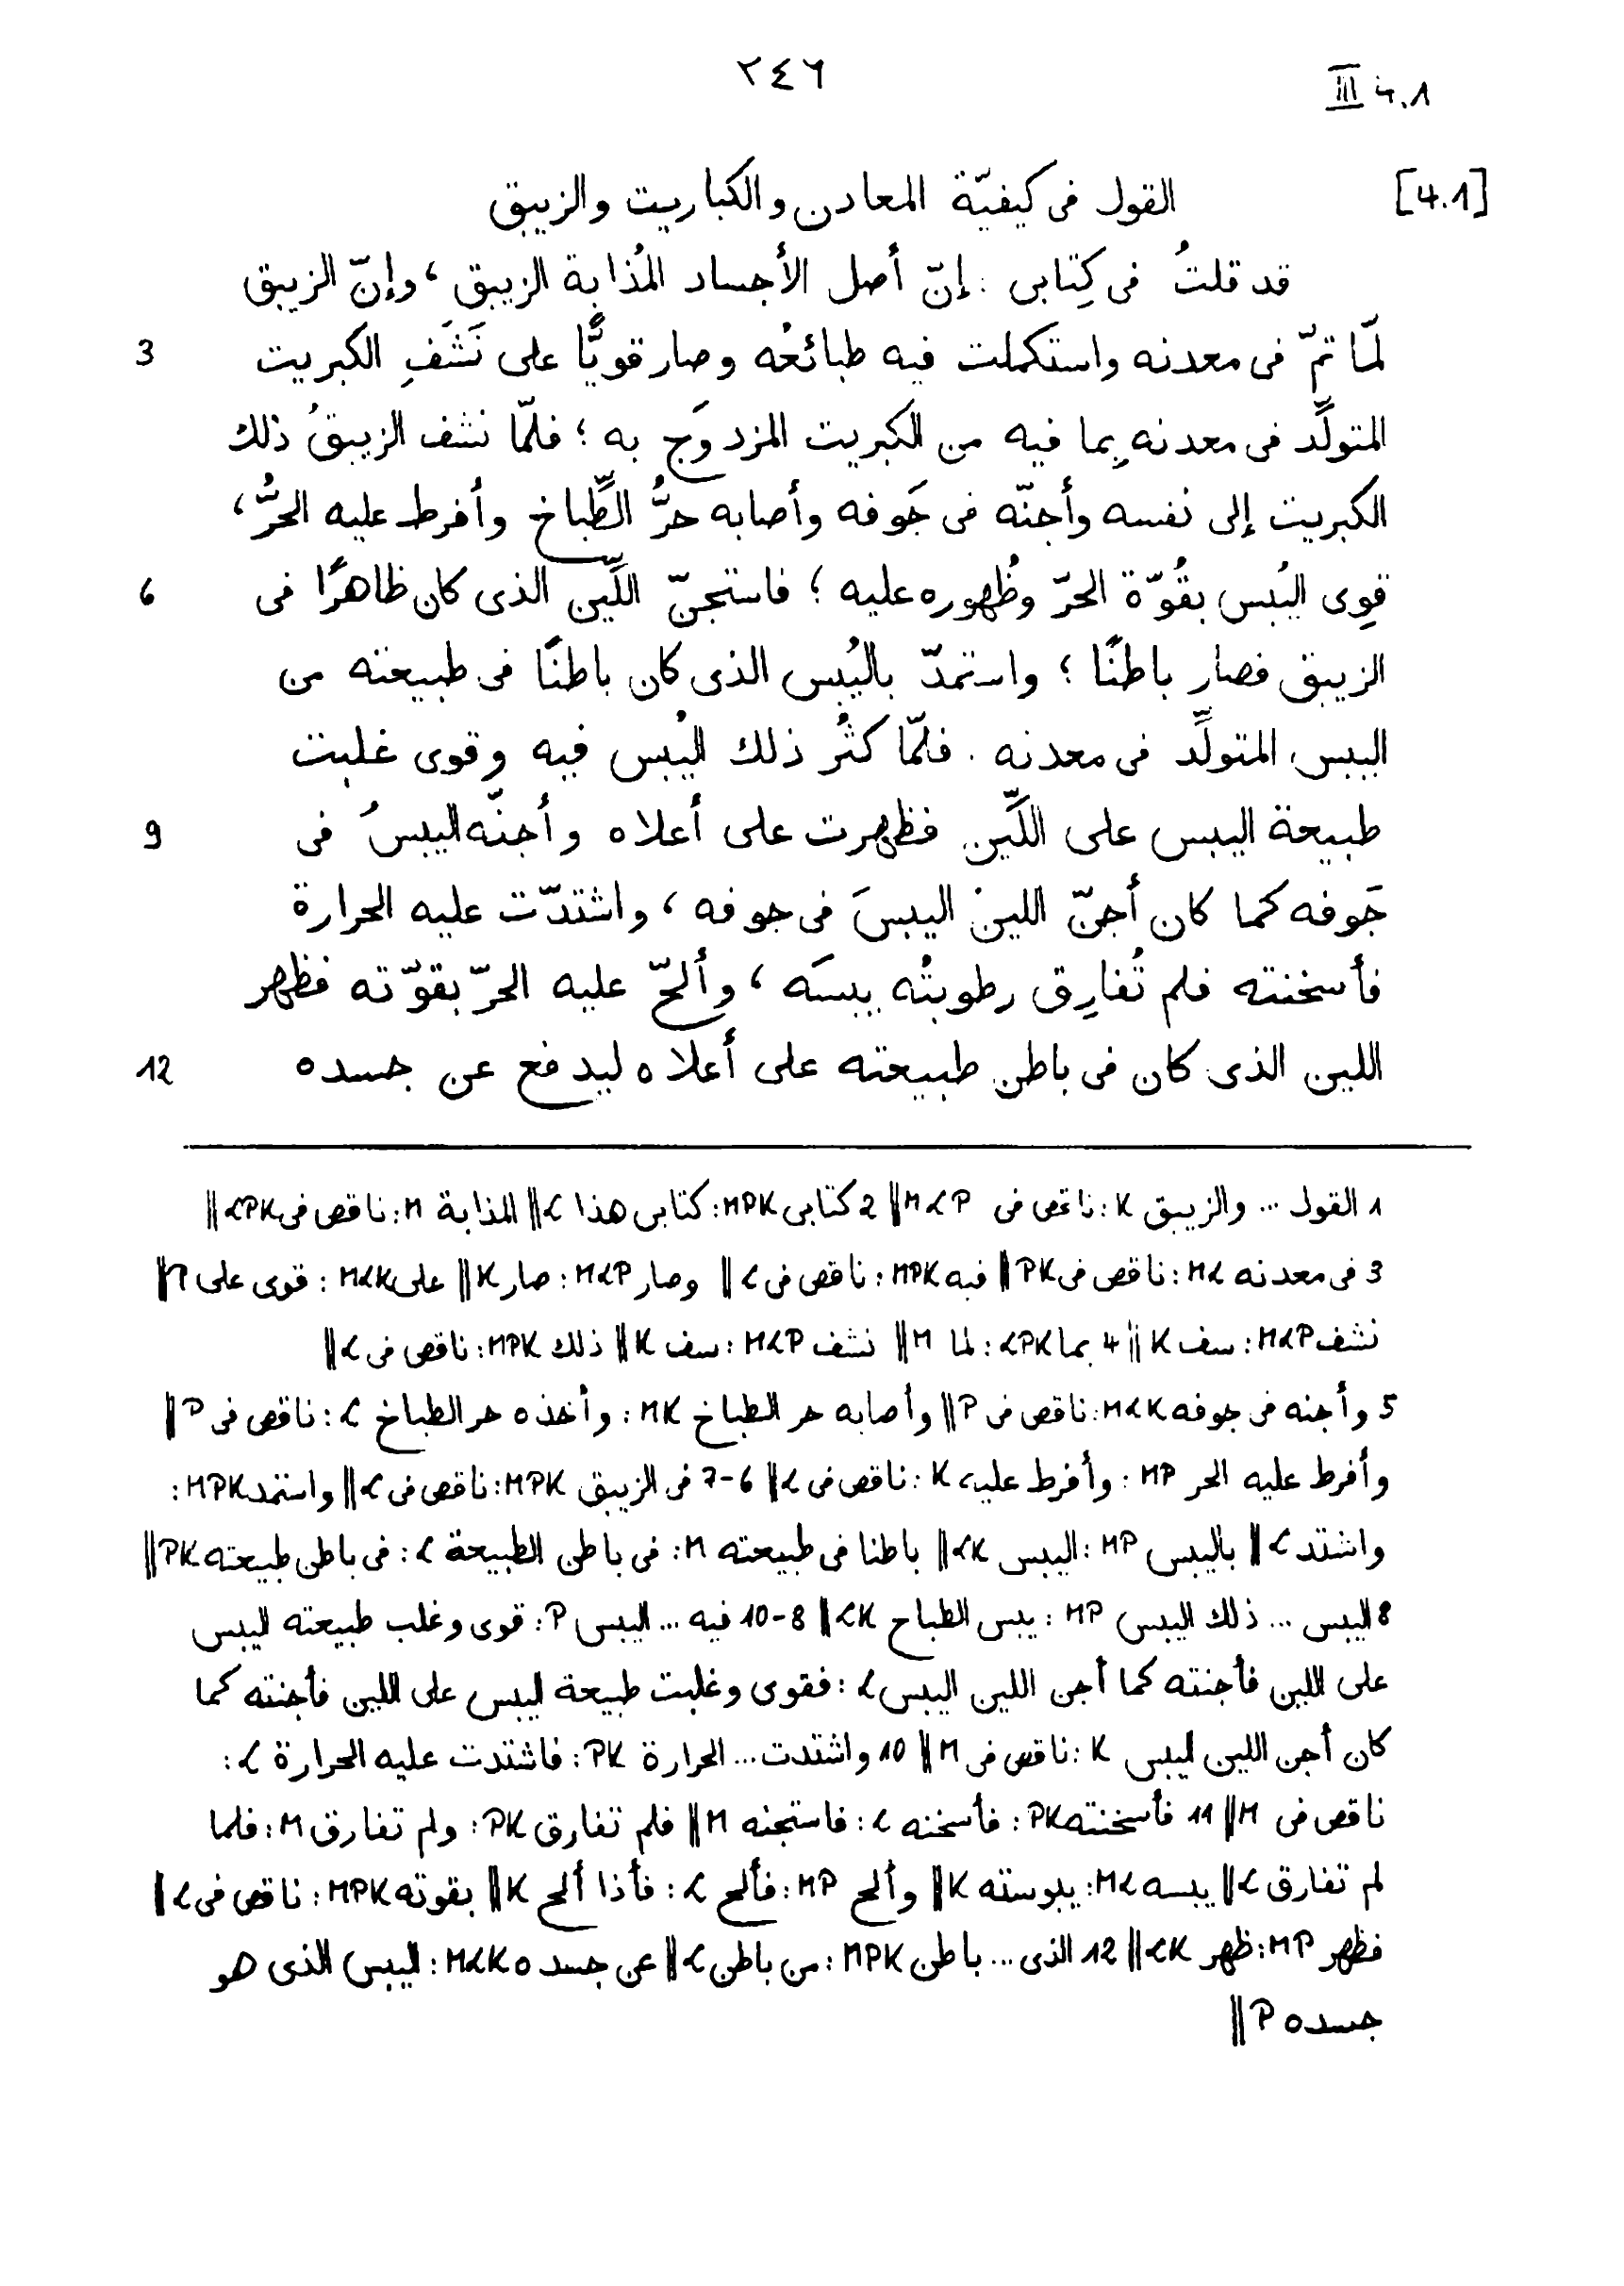 ٢٤٦
III 4.1
[4.1] القول فى كيفيّة المعادن والكباريت والزيبق
قد قلتُ فى كِتابى : إنّ أصل الأجساد المُذابة الزيبق ، وإنّ الزيبق
3 لمّا تمّ فى معدنه واستكملت فيه طبائعُه وصار قويًّا على نَشَفِ الكبريت
المتولِّد فى معدنه بِما فيه من الكبريت المزدوَج به ؛ فلمّا نشف الزيبقُ ذلك
الكبريت إلى نفسه وأجنّه فى جَوفه وأصابه حرُّ الطَّباخ وأفرط عليه الحرُّ ،
6 قوِى اليُبس بقُوّة الحرّ وظُهوره عليه ؛ فاستجنّ اللَّين الذى كان ظاهرًا فى
الزيبق فصار باطنًا ؛ واستمدّ باليُبس الذى كان باطنًا فى طبيعته من
اليبس المتولِّد فى معدنه . فلمّا كثُر ذلك اليُبس فيه وقوى غلبت
9 طبيعة اليبس على اللَّين فظهرت على أعلاه وأجنّه اليبسُ فى
جَوفه كما كان أجنّ اللينُ اليبسَ فى جوفه ، واشتدّت عليه الحرارة
فأسخنته فلم تُفارِق رطوبتُه يبسَه ، وألحّ عليه الحرّ بقوّته فظهر
12 اللين الذى كان فى باطن طبيعته على أعلاه ليدفع عن جسده
1 القول ... والزيبق K : ناقص فى M𝓛P ‖ 2 كتابى MPK : كتابى هذا 𝓛 ‖ المذابة M : ناقص فى 𝓛PK ‖
3 فى معدنه M𝓛 : ناقص فى PK ‖ فيه MPK : ناقص فى 𝓛 ‖ وصار M𝓛P : صار K ‖ على M𝓛K : قوى على P ‖
نشف M𝓛P : سف K ‖ 4 بما 𝓛PK : لما M ‖ نشف M𝓛P : سف K ‖ ذلك MPK : ناقص فى 𝓛 ‖
5 وأجنه فى جوفه M𝓛K : ناقص فى P ‖ وأصابه حر الطباخ MK : وأخذه حر الطباخ 𝓛 : ناقص فى P ‖
وأفرط عليه الحر MP : وأفرط عليه K : ناقص فى 𝓛 ‖ 6-7 فى الزيبق MPK : ناقص فى 𝓛 ‖ واستمد MPK :
واشتد 𝓛 ‖ باليبس MP : اليبس 𝓛K ‖ باطنا فى طبيعته M : فى باطن الطبيعة 𝓛 : فى باطن طبيعته PK ‖
8 اليبس ... ذلك اليبس MP : يبس الطباخ 𝓛K ‖ 8-10 فيه ... اليبس P : قوى وغلب طبيعته اليبس
على اللين فأجنته كما أجن اللين اليبس 𝓛 : فقوى وغلبت طبيعة اليبس على اللين فأجنته كما
كان أجن اللين اليبس K : ناقص فى M ‖ 10 واشتدت ... الحرارة PK : فاشتدت عليه الحرارة 𝓛 :
ناقص فى M ‖ 11 فأسخنته PK : فأسخنه 𝓛 : فاستجنه M ‖ فلم تفارق PK : ولم تفارق M : فلما
لم تفارق 𝓛 ‖ يبسه M𝓛 : يبوسته K ‖ وألح MP : فألح 𝓛 : فأذا ألح K ‖ بقوته MPK : ناقص فى 𝓛 ‖
فظهر MP : ظهر 𝓛K ‖ 12 الذى ... باطن MPK : من باطن 𝓛 ‖ عن جسده M𝓛K : اليبس الذى هو
جسده P ‖